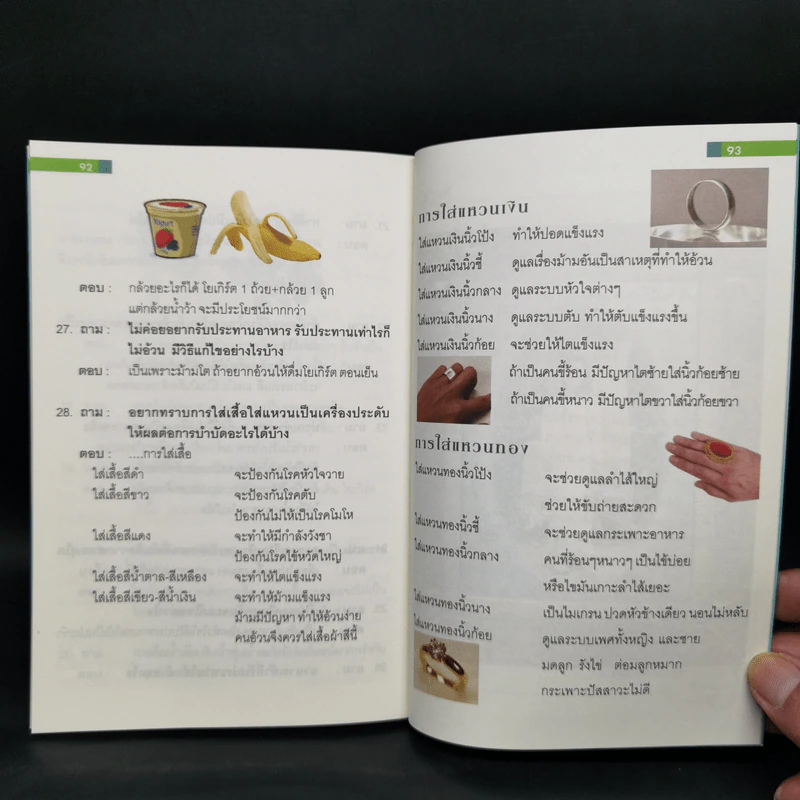 92
Yogurt
ตอบ : กล้วยอะไรก็ได้ โยเกิร์ต 1 ถ้วย+กล้วย 1 ลูก
แต่กล้วยน้ำว้า จะมีประโยชน์มากกว่า
27. ถาม : ไม่ค่อยอยากรับประทานอาหาร รับประทานเท่าไรก็
ไม่อ้วน มีวิธีแก้ไขอย่างไรบ้าง
ตอบ : เป็นเพราะม้ามโต ถ้าอยากอ้วนให้ดื่มโยเกิร์ต ตอนเย็น
28. ถาม : อยากทราบการใส่เสื้อใส่แหวนเป็นเครื่องประดับ
ให้ผลต่อการบำบัดอะไรได้บ้าง
ตอบ : ....การใส่เสื้อ
ใส่เสื้อสีดำ จะป้องกันโรคหัวใจวาย
ใส่เสื้อสีขาว จะป้องกันโรคตับ
ป้องกันไม่ให้เป็นโรคโมโห
ใส่เสื้อสีแดง จะทำให้มีกำลังวังชา
ป้องกันโรคไข้หวัดใหญ่
ใส่เสื้อสีน้ำตาล-สีเหลือง จะทำให้ไตแข็งแรง
ใส่เสื้อสีเขียว-สีน้ำเงิน จะทำให้ม้ามแข็งแรง
ม้ามมีปัญหา ทำให้อ้วนง่าย
คนอ้วนจึงควรใส่เสื้อผ้าสีนี้
93
การใส่แหวนเงิน
ใส่แหวนเงินนิ้วโป้ง ทำให้ปอดแข็งแรง
ใส่แหวนเงินนิ้วชี้ ดูแลเรื่องม้ามอันเป็นสาเหตุที่ทำให้อ้วน
ใส่แหวนเงินนิ้วกลาง ดูแลระบบหัวใจต่างๆ
ใส่แหวนเงินนิ้วนาง ดูแลระบบตับ ทำให้ตับแข็งแรงขึ้น
ใส่แหวนเงินนิ้วก้อย จะช่วยให้ไตแข็งแรง
ถ้าเป็นคนขี้ร้อน มีปัญหาไตซ้ายใส่นิ้วก้อยซ้าย
ถ้าเป็นคนขี้หนาว มีปัญหาไตขวาใส่นิ้วก้อยขวา
การใส่แหวนทอง
ใส่แหวนทองนิ้วโป้ง จะช่วยดูแลลำไส้ใหญ่
ช่วยให้ขับถ่ายสะดวก
ใส่แหวนทองนิ้วชี้ จะช่วยดูแลกระเพาะอาหาร
ใส่แหวนทองนิ้วกลาง คนที่ร้อนๆหนาวๆ เป็นไข้บ่อย
หรือไขมันเกาะลำไส้เยอะ
ใส่แหวนทองนิ้วนาง เป็นไมเกรน ปวดหัวข้างเดียว นอนไม่หลับ
ใส่แหวนทองนิ้วก้อย ดูแลระบบเพศทั้งหญิง และชาย
มดลูก รังไข่ ต่อมลูกหมาก
กระเพาะปัสสาวะไม่ดี